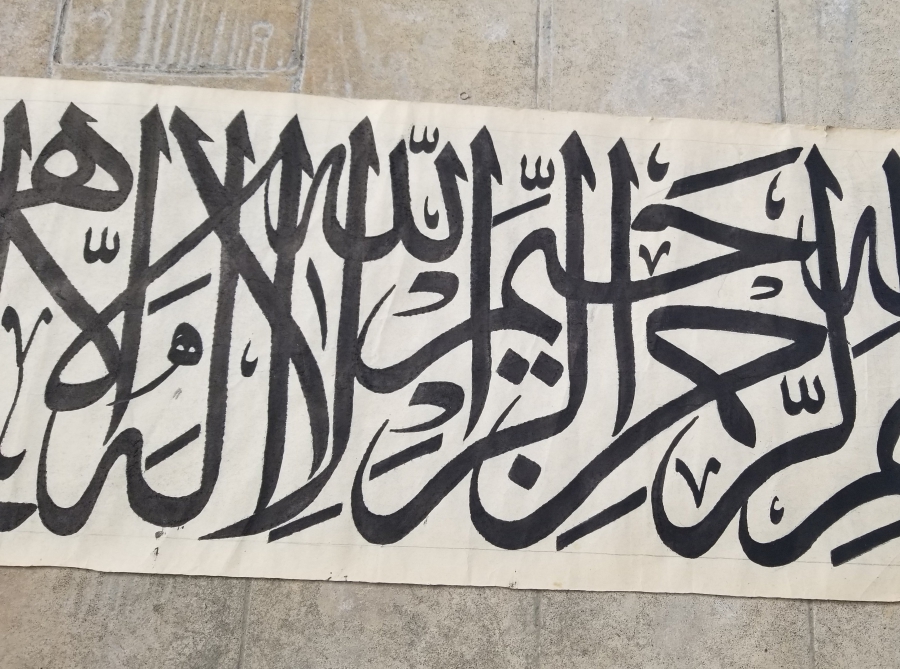 الرحمن الرحيم الله لا إله إلا هو